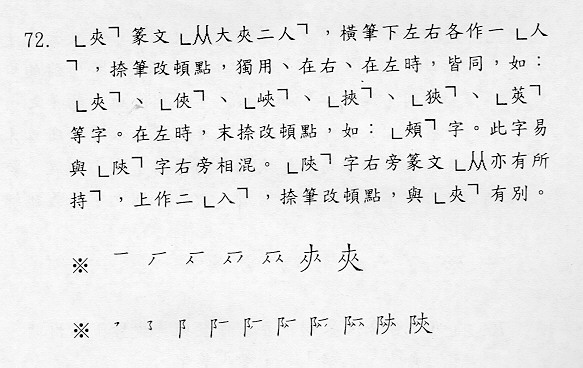 72. ㄴ夾ㄱ篆文ㄴ从大夾二人ㄱ,橫筆下左右各作一ㄴ人
ㄱ,捺筆改頓點,獨用、在右、在左時,皆同,如:
ㄴ夾ㄱ、ㄴ俠ㄱ、ㄴ峽ㄱ、ㄴ挾ㄱ、ㄴ狹ㄱ、ㄴ莢ㄱ
等字。在左時,末捺改頓點,如:ㄴ頰ㄱ字。此字易
與ㄴ陝ㄱ字右旁相混。ㄴ陝ㄱ字右旁篆文ㄴ从亦有所
持ㄱ,上作二ㄴ入ㄱ,捺筆改頓點,與ㄴ夾ㄱ有別。
※ 夾
※ 陝